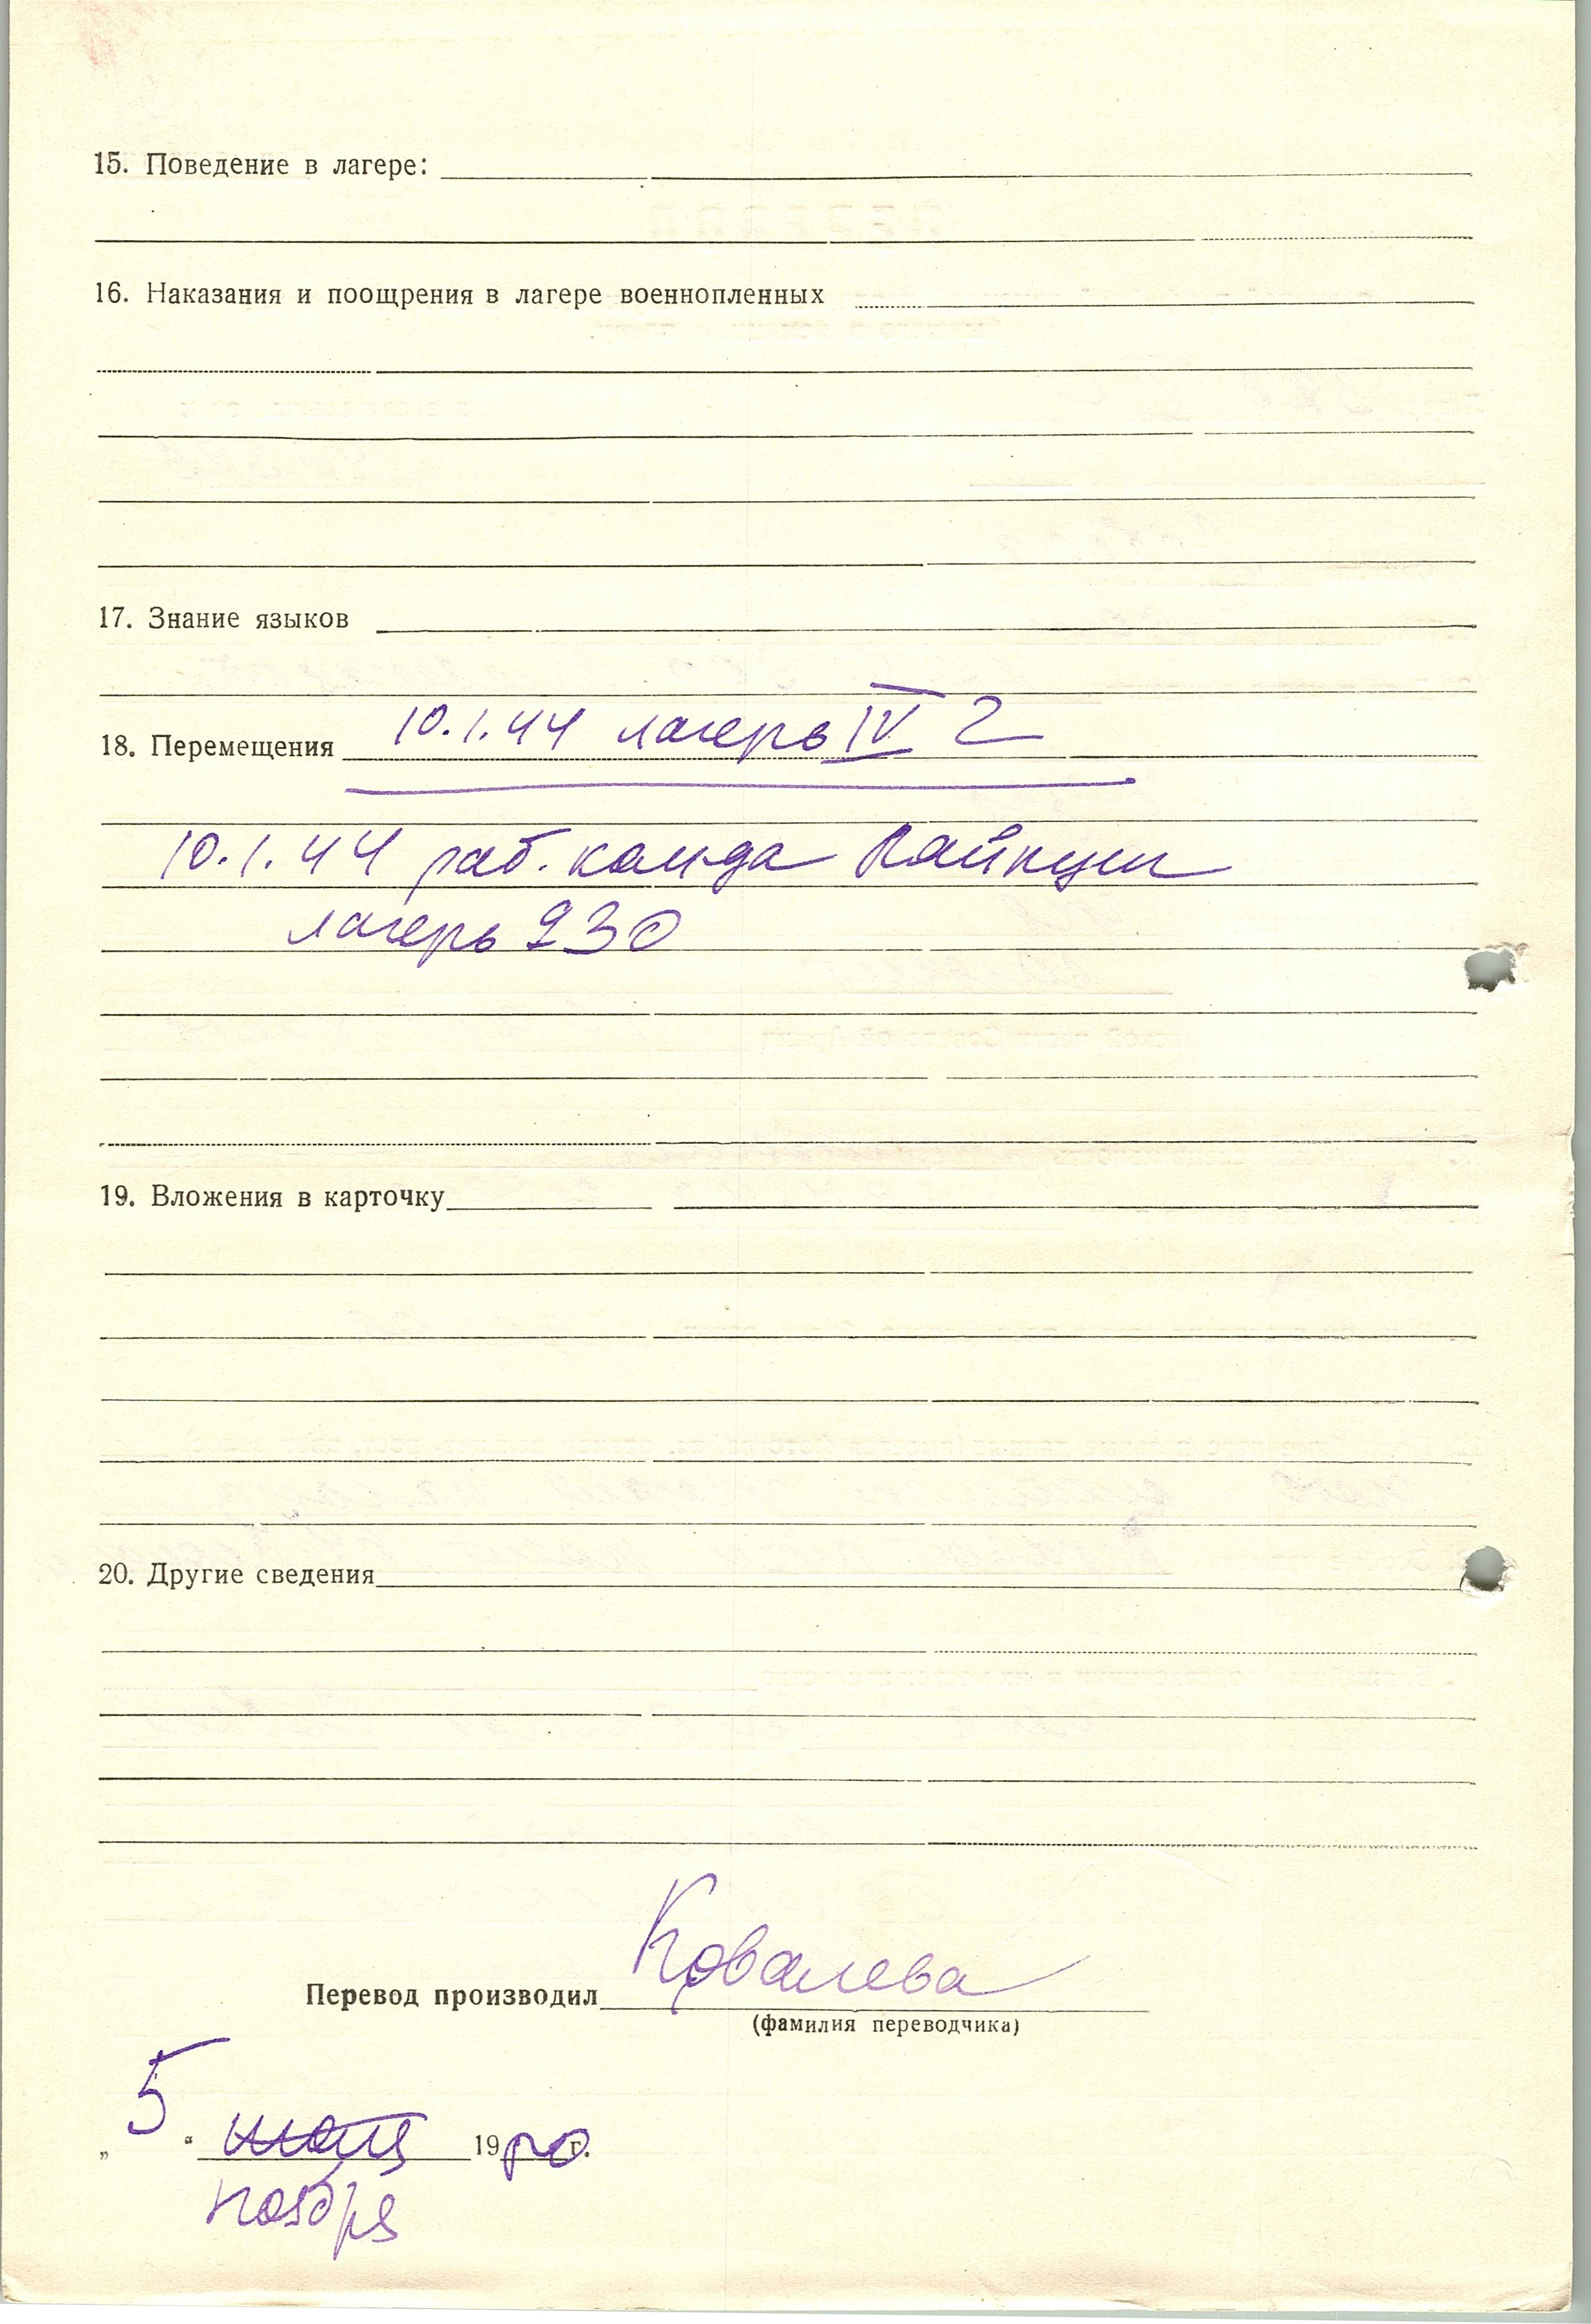 15. Поведение в лагере:
16. Наказания и поощрения в лагере военнопленных
17. Знание языков
18. Перемещения 10.1.44 лагерь IV Г
10.1.44 раб. кам-да
лагерь 230
19. Вложения в карточку
20. Другие сведения
Перевод производил Ковалева
(фамилия переводчика)
„5“ июля 19 г.
ноября